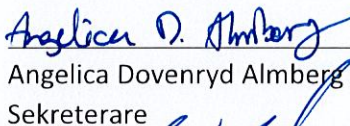 Angelica D. Almberg
Angelica Dovenryd Almberg
Sekreterare